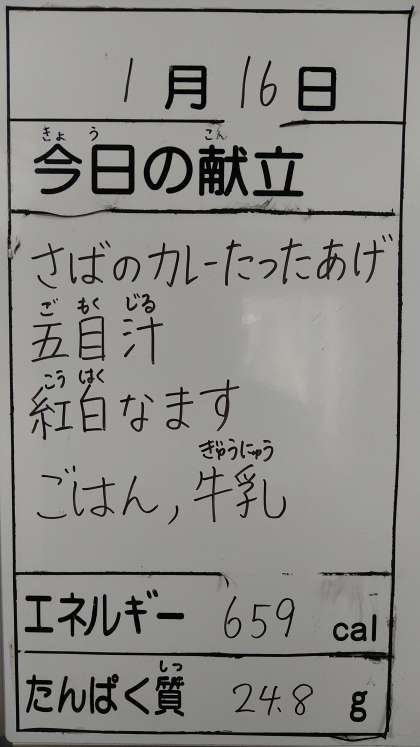 1月16日
きょう こん
今日の献立
さばのカレーたったあげ
ご もく じる
五目汁
こう はく
紅白なます
ぎゅうにゅう
ごはん,牛乳
エネルギー 659 cal
しつ
たんぱく質 24.8 g